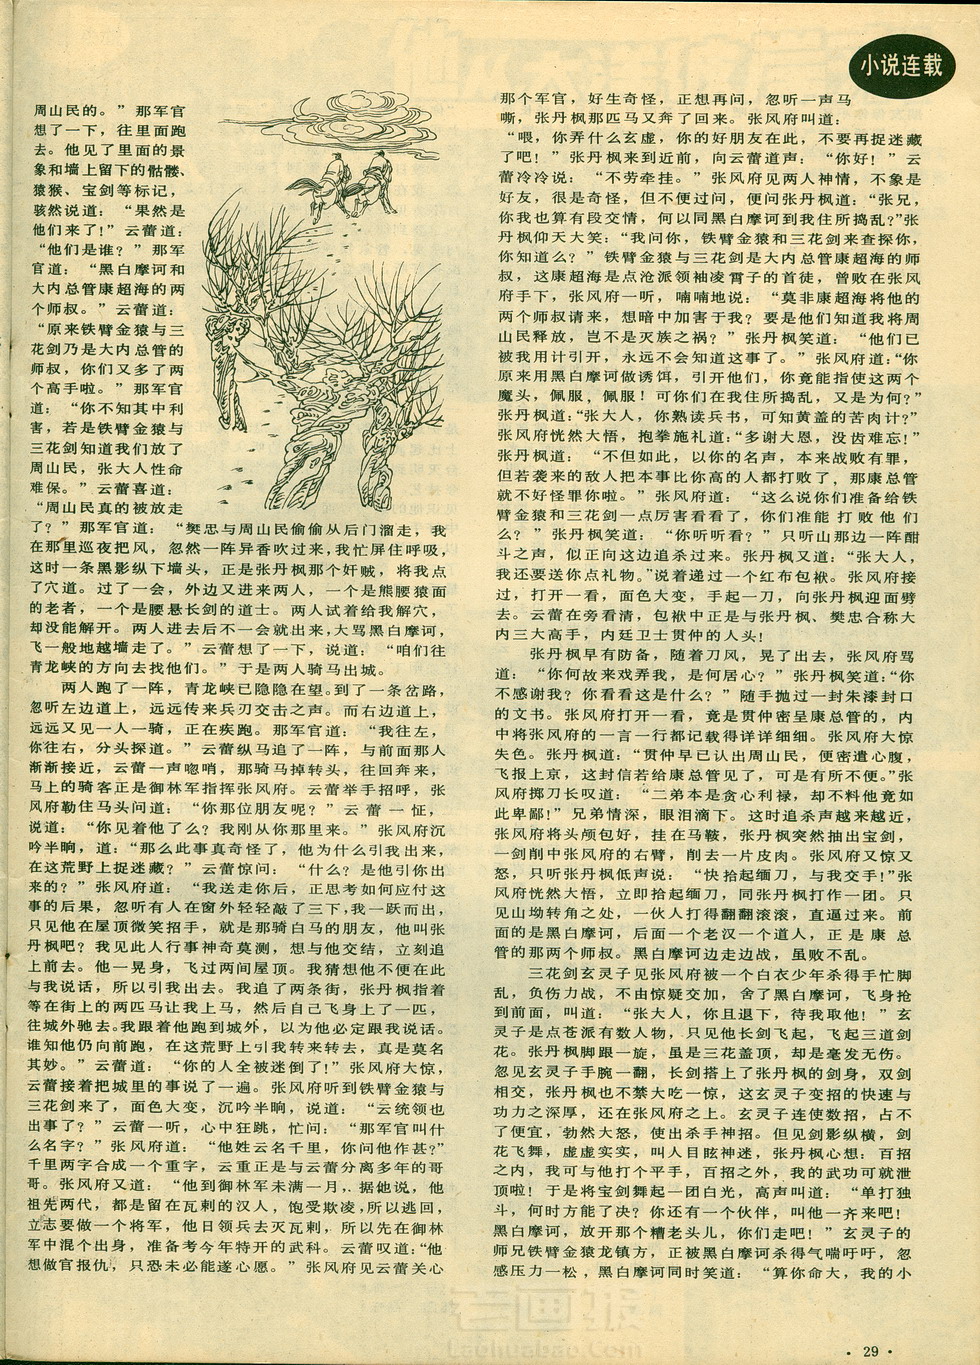 小说连载
周山民的。”那军官
想了一下，往里面跑
去。他见了里面的景
象和墙上留下的骷髅、
猿猴、宝剑等标记，
骇然说道：“果然是
他们来了!”云蕾道：
“他们是谁？”那军
官道：“黑白摩诃和
大内总管康超海的两
个师叔。”云蕾道：
“原来铁臂金猿与三
花剑乃是大内总管的
师叔，你们又多了两
个高手啦。”那军官
道：“你不知其中利
害，若是铁臂金猿与
三花剑知道我们放了
周山民，张大人性命
难保。”云蕾喜道：
“周山民真的被放走
了？”那军官道：“樊忠与周山民偷偷从后门溜走，我
在那里巡夜把风，忽然一阵异香吹过来，我忙屏住呼吸，
这时一条黑影纵下墙头，正是张丹枫那个奸贼，将我点
了穴道。过了一会，外边又进来两人，一个是熊腰猿面
的老者，一个是腰悬长剑的道士。两人试着给我解穴，
却没能解开。两人进去后不一会就出来，大骂黑白摩诃，
飞一般地越墙走了。”云蕾想了一下，说道：“咱们往
青龙峡的方向去找他们。”于是两人骑马出城。
两人跑了一阵，青龙峡已隐隐在望。到了一条岔路，
忽听左边道上，远远传来兵刃交击之声。而右边道上，
远远又见一人一骑，正在疾跑。那军官道：“我往左，
你往右，分头探道。”云蕾纵马追了一阵，与前面那人
渐渐接近，云蕾一声唿哨，那骑马掉转头，往回奔来，
马上的骑客正是御林军指挥张风府。云蕾举手招呼，张
风府勒住马头问道：“你那位朋友呢？”云蕾一怔，
说道：“你见着他了么？我刚从你那里来。”张风府沉
吟半晌，道：“那么此事真奇怪了，他为什么引我出来，
在这荒野上捉迷藏？”云蕾惊问：“什么？是他引你出
来的？”张风府道：“我送走你后，正思考如何应付这
事的后果，忽听有人在窗外轻轻敲了三下，我一跃而出，
只见他在屋顶微笑招手，就是那骑白马的朋友，他叫张
丹枫吧？我见此人行事神奇莫测，想与他交结，立刻追
上前去。他一晃身，飞过两间屋顶。我猜想他不便在此
与我说话，所以引我出去。我追了两条街，张丹枫指着
等在街上的两匹马让我上马，然后自己飞身上了一匹，
往城外驰去。我跟着他跑到城外，以为他必定跟我说话。
谁知他仍向前跑，在这荒野上引我转来转去，真是莫名
其妙。”云蕾道：“你的人全被迷倒了!”张风府大惊，
云蕾接着把城里的事说了一遍。张风府听到铁臂金猿与
三花剑来了，面色大变，沉吟半晌，说道：“云统领也
出事了？”云蕾一听，心中狂跳，忙问：“那军官叫什
么名字？”张风府道：“他姓云名千里，你问他作甚？”
千里两字合成一个重字，云重正是与云蕾分离多年的哥
哥。张风府又道：“他到御林军未满一月，据他说，他
祖先两代，都是留在瓦剌的汉人，饱受欺凌，所以逃回，
立志要做一个将军，他日领兵去灭瓦剌，所以先在御林
军中混个出身，准备考今年特开的武科。云蕾叹道：“他
想做官报仇，只恐未必能遂心愿。”张风府见云蕾关心
那个军官，好生奇怪，正想再问，忽听一声马
嘶，张丹枫那匹马又奔了回来。张风府叫道：
“喂，你弄什么玄虚，你的好朋友在此，不要再捉迷藏
了吧！”张丹枫来到近前，向云蕾道声：“你好！”云
蕾冷冷说：“不劳牵挂。”张风府见两人神情，不象是
好友，很是奇怪，但不便过问，便问张丹枫道：“张兄，
你我也算有段交情，何以同黑白摩诃到我住所捣乱？”张
丹枫仰天大笑：“我问你，铁臂金猿和三花剑来查探你，
你知道么？”铁臂金猿与三花剑是大内总管康超海的师
叔，这康超海是点沧派领袖凌霄子的首徒，曾败在张风
府手下，张风府一听，喃喃地说：“莫非康超海将他的
两个师叔请来，想暗中加害于我？要是他们知道我将周
山民释放，岂不是灭族之祸？”张丹枫笑道：“他们已
被我用计引开，永远不会知道这事了。”张风府道：“你
原来用黑白摩诃做诱饵，引开他们，你竟能指使这两个
魔头，佩服，佩服！可你们在我住所捣乱，又是为何？”
张丹枫道：“张大人，你熟读兵书，可知黄盖的苦肉计？”
张风府恍然大悟，抱拳施礼道：“多谢大恩，没齿难忘！”
张丹枫道：“不但如此，以你的名声，本来战败有罪，
但若袭来的敌人把本事比你高的人都打败了，那康总管
就不好怪罪你啦。”张风府道：“这么说你们准备给铁
臂金猿和三花剑一点厉害看看了，你们准能打败他们
么？”张丹枫笑道：“你听听看？”只听山那边一阵酣
斗之声，似正向这边追杀过来。张丹枫又道：“张大人，
我还要送你点礼物。”说着递过一个红布包袱。张风府接
过，打开一看，面色大变，手起一刀，向张丹枫迎面劈
去。云蕾在旁看清，包袱中正是与张丹枫、樊忠合称大
内三大高手，内廷卫士贯仲的人头！
张丹枫早有防备，随着刀风，晃了出去，张风府骂
道：“你何故来戏弄我，是何居心？”张丹枫笑道：“你
不感谢我？你看看这是什么？”随手抛过一封朱漆封口
的文书。张风府打开一看，竟是贯仲密呈康总管的，内
中将张风府的一言一行都记载得详详细细。张风府大惊
失色。张丹枫道：“贯仲早已认出周山民，便密遣心腹，
飞报上京，这封信若给康总管见了，可是有所不便。”张
风府掷刀长叹道：“二弟本是贪心利禄，却不料他竟如
此卑鄙！”兄弟情深，眼泪滴下。这时追杀声越来越近，
张风府将头颅包好，挂在马鞍，张丹枫突然抽出宝剑，
一剑削中张风府的右臂，削去一片皮肉。张风府又惊又
怒，只听张丹枫低声说：“快拾起缅刀，与我交手！”张
风府恍然大悟，立即拾起缅刀，同张丹枫打作一团。只
见山坳转角之处，一伙人打得翻翻滚滚，直逼过来。前
面的是黑白摩诃，后面一个老汉一个道人，正是康总
管的那两个师叔。黑白摩诃边走边战，虽败不乱。
三花剑玄灵子见张风府被一个白衣少年杀得手忙脚
乱，负伤力战，不由惊疑交加，舍了黑白摩诃，飞身抢
到前面，叫道：“张大人，你且退下，待我取他！”玄
灵子是点苍派有数人物，只见他长剑飞起，飞起三道剑
花。张丹枫脚跟一旋，虽是三花盖顶，却是毫发无伤。
忽见玄灵子手腕一翻，长剑搭上了张丹枫的剑身，双剑
相交，张丹枫也不禁大吃一惊，这玄灵子变招的快速与
功力之深厚，还在张风府之上。玄灵子连使数招，占不
了便宜，勃然大怒，使出杀手神招。但见剑影纵横，剑
花飞舞，虚虚实实，叫人目眩神迷，张丹枫心想：百招
之内，我可与他打个平手，百招之外，我的武功可就泄
顶啦！于是将宝剑舞起一团白光，高声叫道：“单打独
斗，何时方能了决？你还有一个伙伴，叫他一齐来吧！
黑白摩诃，放开那个糟老头儿，你们走吧！”玄灵子的
师兄铁臂金猿龙镇方，正被黑白摩诃杀得气喘吁吁，忽
感压力一松，黑白摩诃同时笑道：“算你命大，我的小
老画报
laohuabao.com
·29·